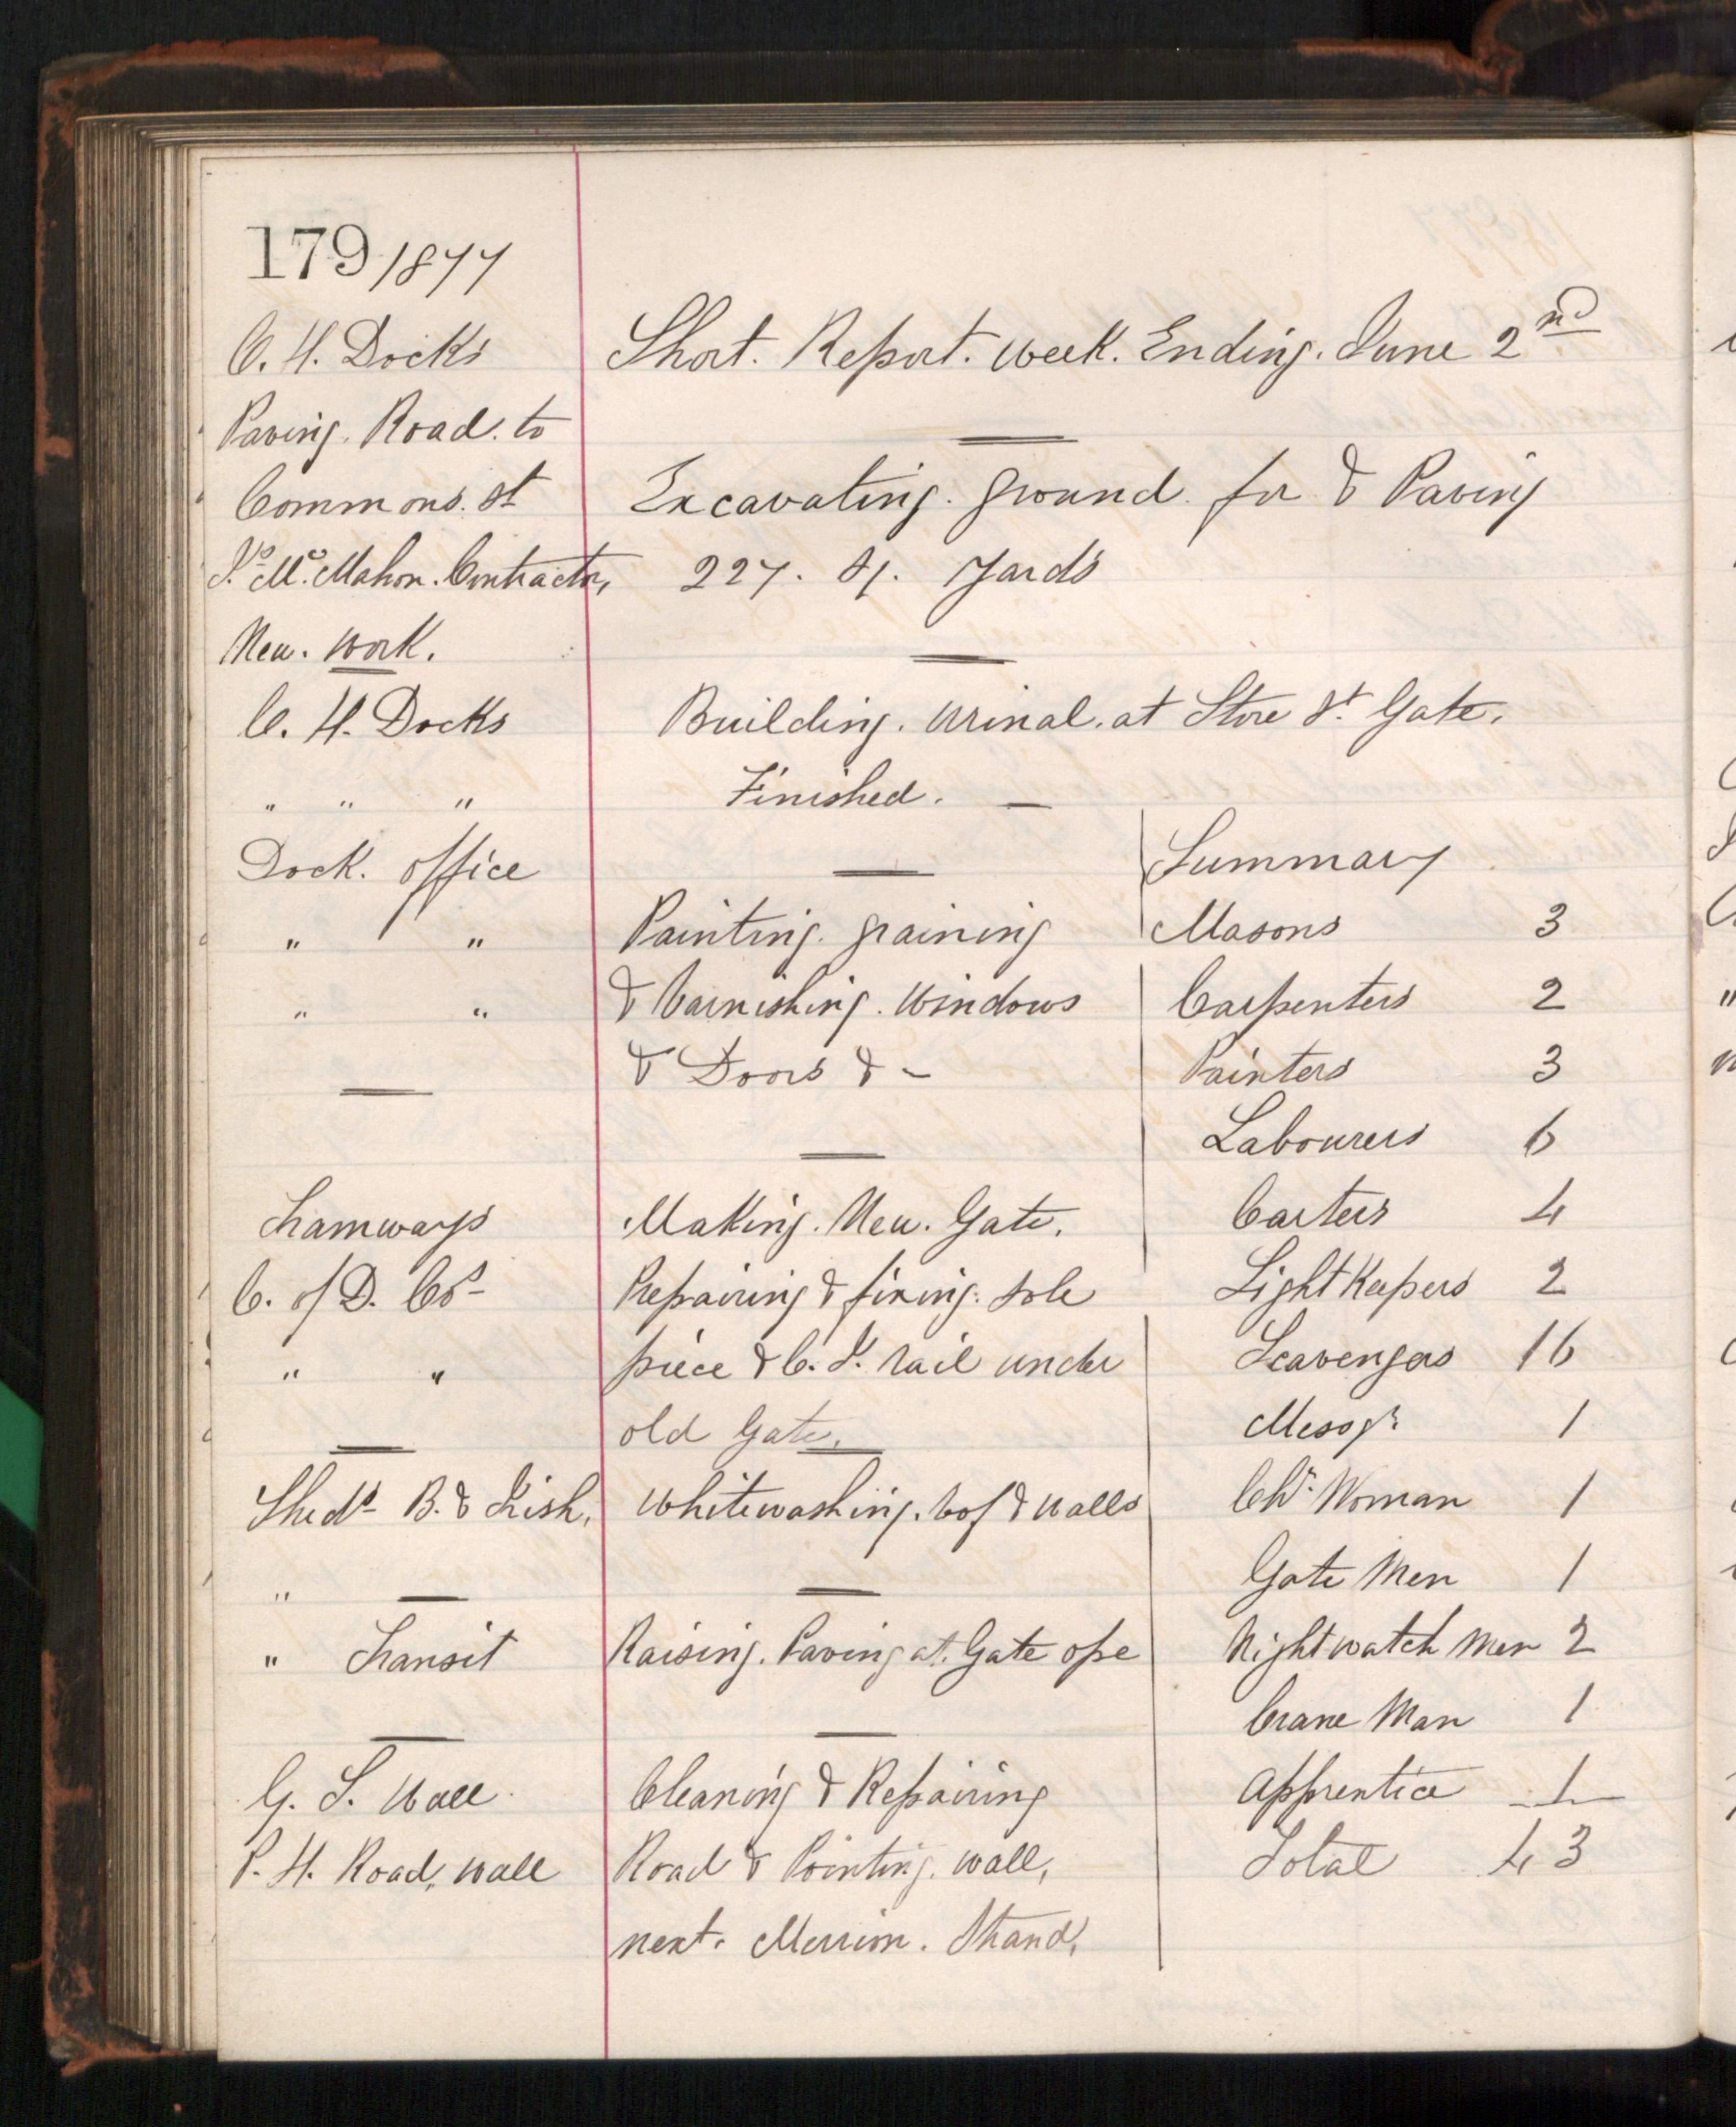 179/1877
C. H. Docks
Short. Report. Week. Ending. June 2nd
Paving. Road. to
Commons. St
Excavating. ground. for & Paving
Jno. McMahon. Contractor,
227. Sq. Yards
New. Work.
C. H. Docks
Building. Urinal. at Store St. Gate.
" " "
Finished. —
Dock. office
Summary
" "
Painting. graining
Masons 3
" "
& Varnishing. Windows
Carpenters 2
& Doors & -
Painters 3
Labourers 6
Tramways
Making. New. Gate.
Carters 4
C. of D. Cos-
Repairing & fixing. sole
Light Keepers 2
" "
piece & C. I. rail under
Scavengers 16
old Gate.
Messgr 1
Sheds B. & Irish.
Whitewashing. & walls
Chr. Woman 1
"
Gate Men 1
" Transit
Raising. Paving at. Gate ope
Night watch Men 2
Crane Man 1
G. S. Wall
Cleaning & Repairing
Apprentice 1
P. H. Road, wall
Road & Pointing. wall,
Total 43
next. Merrion. Strand,